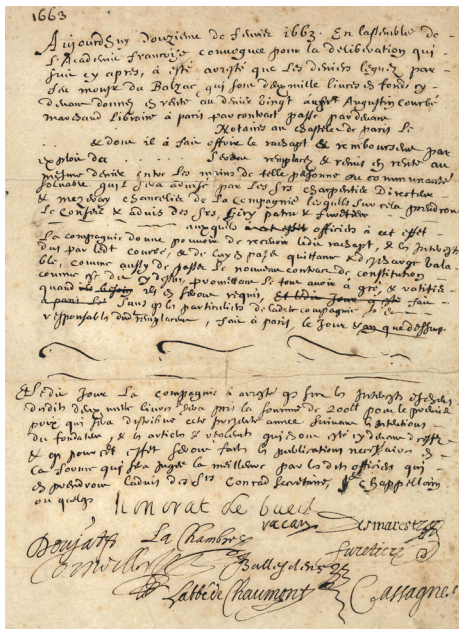 1663
Aujourdhuy douziesme de fevrier 1663. En lassemblee de
L'Academie francoise convoquee pour la deliberation qui
suit cy apres, a esté aresté que les deniers leguez par
feu monsr de Balzac, qui sont deux mille livres en fond cy
devant donnez en rente au denier vingt Augustin Courbé
marchand Libraire a paris par contract passé pardevant
Notaires au chastelet de paris le
& dont il a fait offrir le rachapt & remboursement par
exploit du seront remplacez & remis en rente au
mesme denier entre les mains de telle personne ou communauté
solvable qui sera advisé par les Srs charpentier Directeur
& mezeray chancelier de la Compagnie lesquels sur cela prendront
le Conseil & advis des Srs patru & furetiere
auxquels officiers a cet effet
La compagnie donne pouvoir de recevoir ledit rachapt, & les Interests
dus par ledit Courbé, & de luy en passer quittance & descharge vala
ble, comme aussy de passer le nouveau contract de constitution
promettant le tout avoir a gré, & ratifier
quand ils en seront requis, sans que
les particuliers de ladite compagnie
responsables dud remplacement, fait a paris, le jour & an que dessus.
Et ledit Jour La compagnie a aresté que sur les Interests
desdits deux mille livres sera pris la somme de 200ll pour le premier
prix qui sera distribué cette presente annee suivant les intentions
du fondateur, & les articles
& que pour cet effet seront faits les publications necessaires
la forme qui sera jugée la meilleure par lesdits officiers qui
en prendront ladvis des Srs Conrard secretaire, Chappellain
ou quelques
Honorat de bueil
racan Desmarests
Doujat La Chambre furetiere
Corneille Ballesdens
Labbé de Chaumont Cassagnes